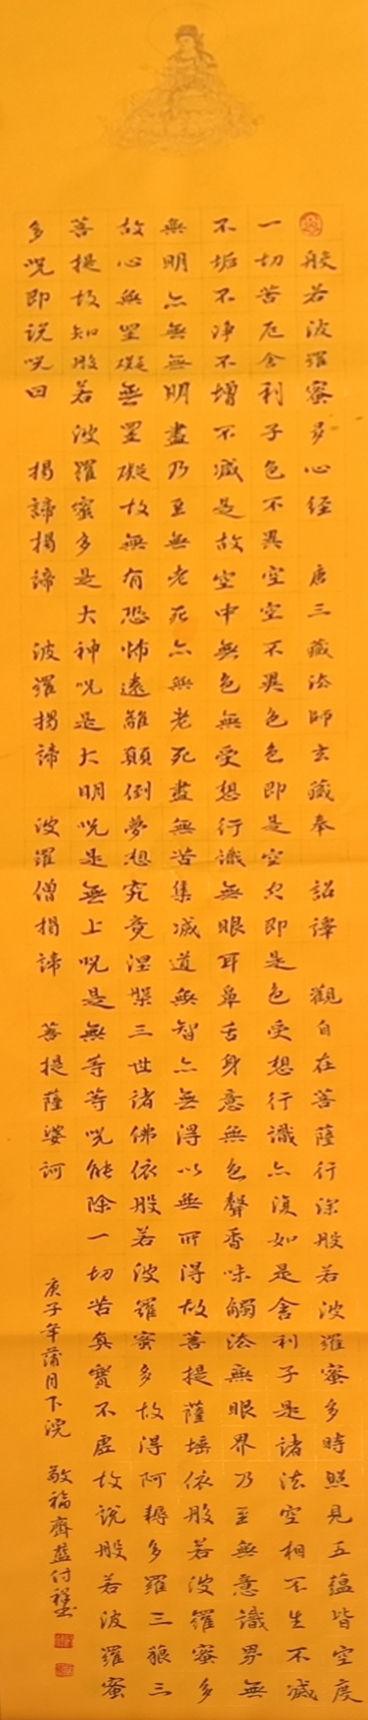 般若波羅蜜多心經 唐三藏法師玄藏奉 詔譯 觀自在菩薩行深般若波羅蜜多時照見五蘊皆空度
一切苦厄舍利子色不異空空不異色色即是空空即是色受想行識亦復如是舍利子是諸法空相不生不滅
不垢不淨不增不減是故空中無色無受想行識無眼耳鼻舌身意無色聲香味觸法無眼界乃至無意識界無
無明亦無無明盡乃至無老死亦無老死盡無苦集滅道無智亦無得以無所得故菩提薩埵依般若波羅蜜多
故心無罣礙無罣礙故無有恐怖遠離顛倒夢想究竟涅槃三世諸佛依般若波羅蜜多故得阿耨多羅三藐三
菩提故知般若波羅蜜多是大神咒是大明咒是無上咒是無等等咒能除一切苦真實不虛故說般若波羅蜜
多咒即說咒曰 揭諦揭諦 波羅揭諦 波羅僧揭諦 菩提薩婆訶
庚子年蒲月下浣 敬福齋藍付